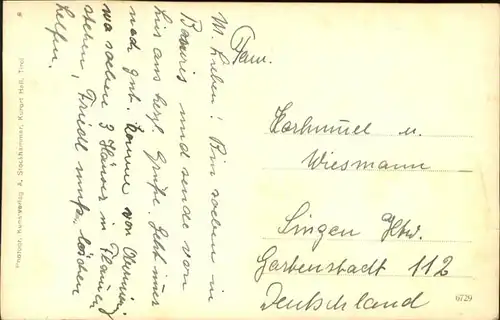 M. Lieben! Bin soeben in
Bavaris und sende von
hier aus herzl. Grüße. Geht mir
noch gut. Komme von
wo soeben 3 Häuser in Flammen
stehen, Friedl muß löschen
helfen.
Fam.
Karhumel u.
Wiesmann
Singen Htw.
Gartenstadt 112
Deutschland
Photogr. Kunstverlag A. Stockhammer, Kurort Hall, Tirol
6729